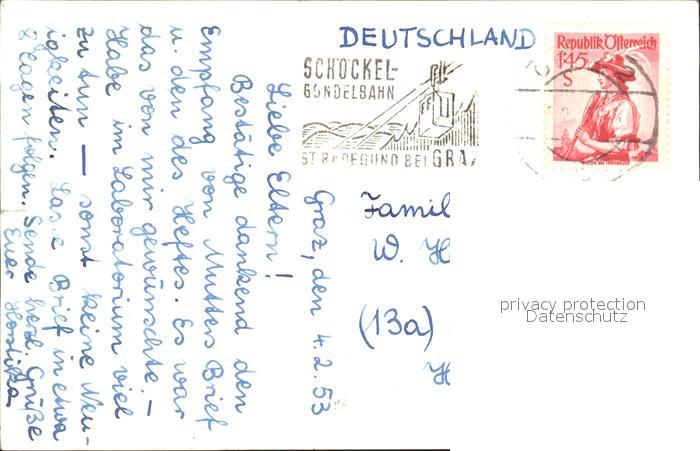 DEUTSCHLAND
SCHÖCKEL-
GONDELBAHN
ST. RADEGUND BEI GRAZ
Republik Österreich
1'45
S
Graz, den 4.2.53
Liebe Eltern!
Bestätige dankend den
Empfang von Mutters Brief
u. den des Heftes. Es war
das von mir gewünschte. —
Habe im Laboratorium viel
zu tun — sonst keine Neu-
igkeiten. Lasse Brief in etwa
8 Tagen folgen. Sende herzl. Grüße
Euer
Famil
W. H
(13a)
H
privacy protection
Datenschutz